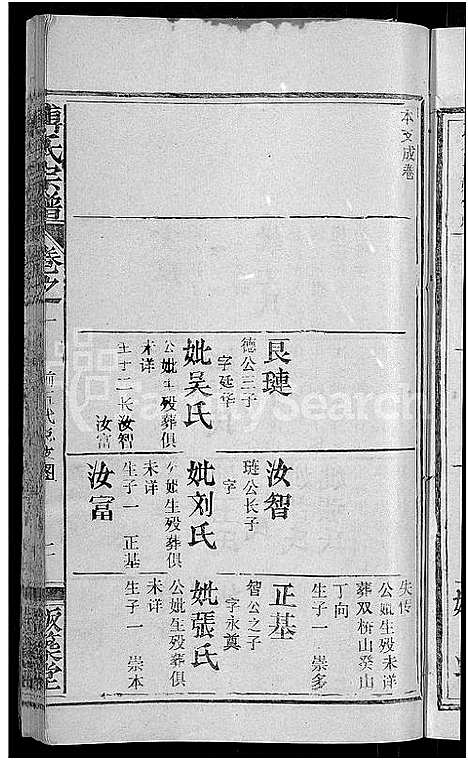 本支成卷
良璉
德公三子
字延华
妣吴氏
公妣生殁葬俱
未详
生子二长汝智
汝富
汝智
琏公长子
字
妣刘氏
公妣生殁葬俱
未详
生子一 正基
汝富
失传
公妣生殁未详
葬双桥山癸山
丁向
生子一 崇多
正基
智公之子
字永奠
妣張氏
公妣生殁葬俱
未详
生子一 崇本
傅氏宗譜
卷之
版築堂
FamilySearch